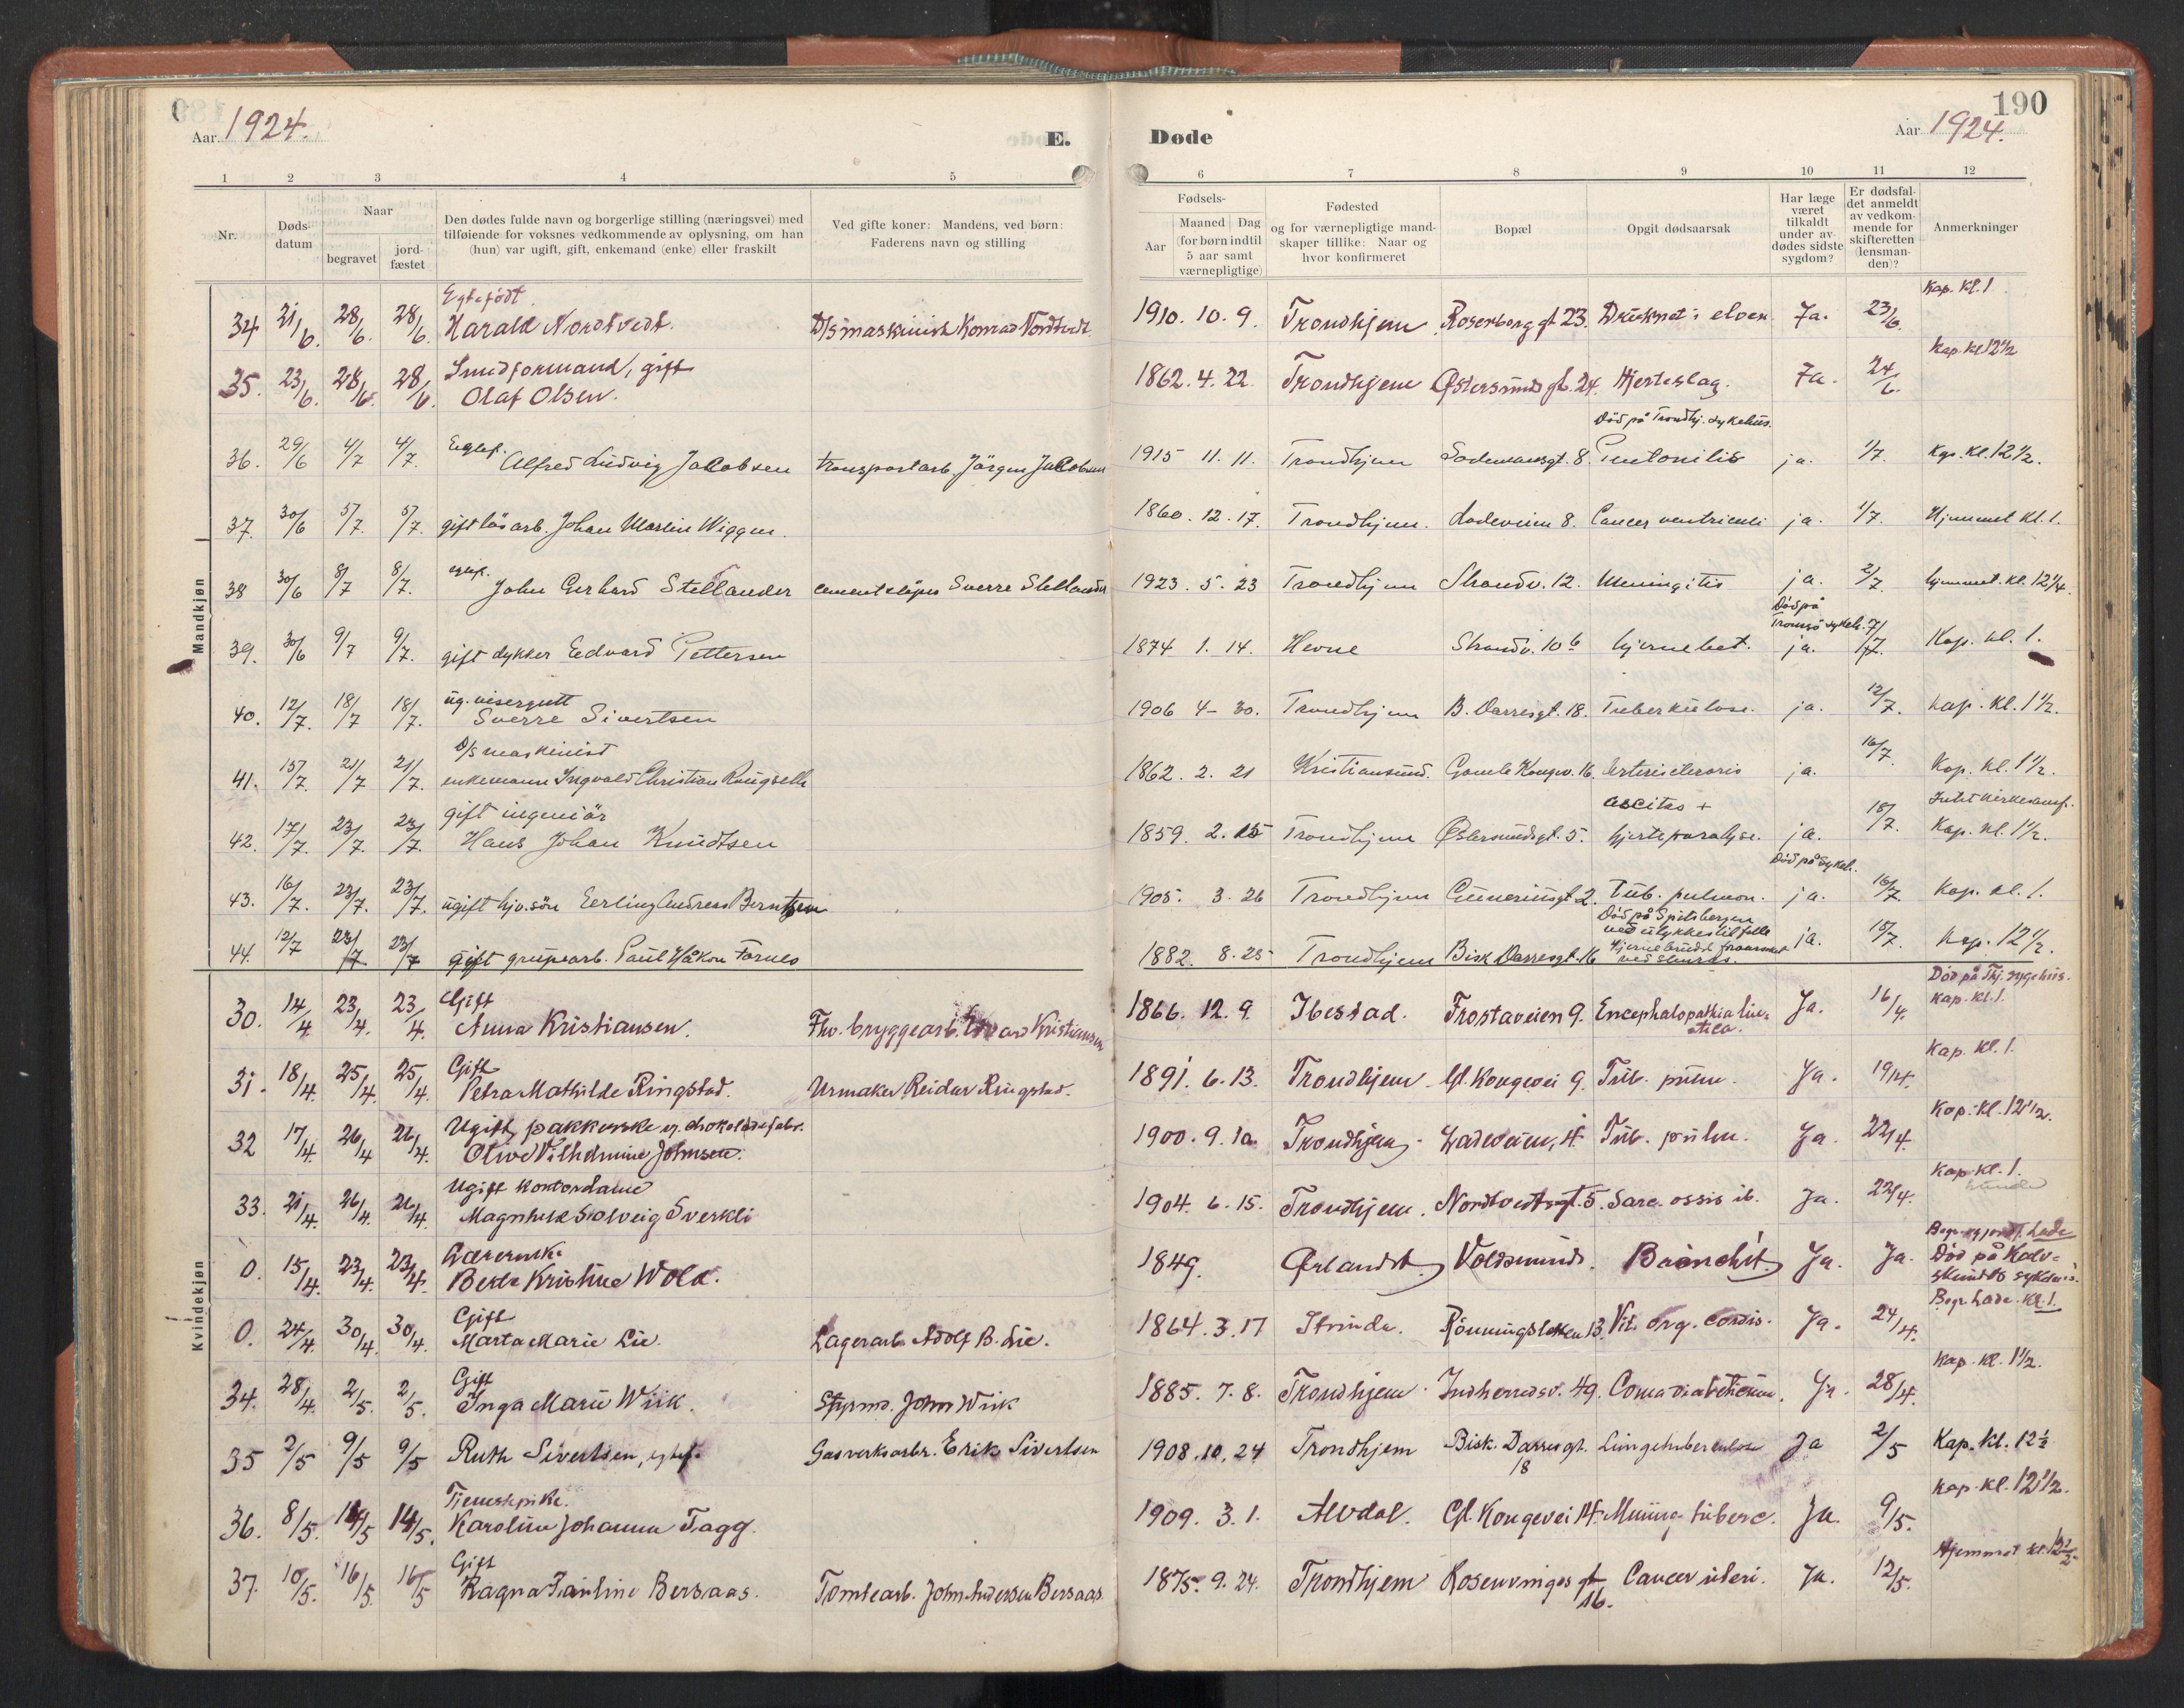 190
Aar 1924.
E.
Døde
Aar 1924.
1 2 3 4 5 6 7 8 9 10 11 12
Nr.
Døds-
datum
Naar
begravet
jord-
fæstet
Den dødes fulde navn og borgerlige stilling (næringsvei) med
tilføiende for voksnes vedkommende av oplysning, om han
(hun) var ugift, gift, enkemand (enke) eller fraskilt
Ved gifte koner: Mandens, ved børn:
Faderens navn og stilling
Fødsels-
Aar
Maaned Dag
(for børn indtil
5 aar samt
værnepligtige)
Fødested
og for værnepligtige mand-
skaper tillike: Naar og
hvor konfirmeret
Bopæl
Opgit dødsaarsak
Har læge
været
tilkaldt
under av-
dødes sidste
sygdom?
Er dødsfal-
det anmeldt
av vedkom-
mende for
skifteretten
(lensman-
den)?
Anmerkninger
Mandkjøn
Egtefödt Kap. kl. 1
34 21/6. 28/6. 28/6. Harald Nordtvedt. D/S maskinist Konrad Nordtvedt 1910. 10. 9. Trondhjem Rosenborg gt 23. Druknet i elven Ja. 23/6.
Smedformand, gift Kap. kl 12 1/2
35. 23/6. 28/6. 28/6. Olaf Olsen. 1862. 4. 22. Trondhjem Østersunds gt. 24. Hjerteslag. Ja. 24/6.
Död på Trondhj. sykehus.
36. 29/6 4/7 4/7. Egtef. Alfred Ludvig Jakobsen transportarb. Jörgen Jakobsen 1915 11. 11. Trondhjem Sodemansgt. 8. ja. 1/7. Kap. Kl. 12 1/2.
37. 30/6 5/7. 5/7. gift løsarb. Johan Martin Wiggen. 1860. 12. 17. Trondhjem. Ladeveien 8. Cancer ventriculi ja. 1/7. Hjemmet kl. 1.
38 30/6 8/7 8/7. egtef. John Gerhard Stellander Sverre Stellander 1923. 5. 23 Trondhjem Strandv. 12. Meningitis ja. 2/7. hjemmet. kl. 12 1/4.
Död på
Tromsö sykeh.
39. 30/6 9/7 9/7. gift dykker Edvard Pettersen 1874 1. 14. Hevne Strandv. 10 b hjernebet. ja. 7/7. Kap. kl. 1.
ug. visergutt
40. 12/7. 18/7 18/7. Sverre Sivertsen 1906 4- 30. Trondhjem B. Darresgt. 18. Tuberkulose. ja. 12/7. kap. kl. 1 1/2.
D/S maskinist
41. 15/7. 21/7 21/7. enkemann Ingvald Christian 1862. 2. 21 Kristiansund. Gamle Kongev. 16. ja. 16/7. Kap. kl. 1 1/2.
gift ingeniör ascites +
42. 17/7. 23/7. 23/7. Hans Johan Knudtsen 1859. 2. 15 Trondhjem Østersundsgt. 5. hjerteparalyse. ja. 18/7. Kap. kl. 1 1/2.
Död på sykeh.
43. 16/7. 23/7. 23/7. ugift hjv. sön Erling Andreas Berntzen 1905. 3. 26 Trondhjem Gunnerusgt 2. Tub. pulmon. ja. 16/7. Kap. kl. 1.
Död på Spitsbergen
ved ulykkestilfelle
44. 12/7 23/7 23/7 gift grupearb. Paul Håkon Farnes 1882. 8. 25 Trondhjem Bisk Darresgt. 16 ja. 15/7. kap. 12 1/2.
Kvindekjøn
Gift Död på Thj. sygehus.
30. 14/4 23/4. 23/4. Anna Kristiansen. Fhv. bryggearb. Edvard Kristiansen 1866. 12. 9. Ibestad. Frostaveien 9. Encephalopathia luetica. Ja. 16/4. Kap. kl. 1.
Gift Kap. kl. 1.
31. 18/4. 25/4. 25/4. Petra Mathilde Ringstad. Urmaker Reidar Ringstad. 1891. 6. 13. Trondhjem Gl. Kongevei 9. Tub. pulm. Ja. 19/4.
Ugift, pakkerske v. chokoladefabr. Kap. kl. 12 1/2.
32 17/4. 26/4 26/4. Olive Vilhelmine Johnsen. 1900. 9. 10. Trondhjem Ladeveien, 4. Tub. pulm. Ja. 22/4.
Ugift kontordame Kap. kl. 1.
33. 21/4. 26/4. 26/4. Magnhild Solveig Sverkli 1904. 6. 15. Trondhjem. Nordtvedtsgt. 5. Sarc. ossis il. Ja. 22/4.
Lærerinde Lade
0. 15/4. 23/4. 23/4. Berte Kristine Wold. 1849. Ørlandet Voldsminde. Bronchit Ja. Ja. Död på Kalv-
skindets sykehus.
Gift Begr. Lade kl. 1.
0. 24/4. 30/4. 30/4. Marta Marie Lie. Lagerarb. Adolf B. Lie. 1864. 3. 17 Strinda. Rönningsletten 13. Vit. org. cordis. Ja. 24/4.
Gift Kap. kl. 1 1/2.
34. 28/4. 2/5. 2/5. Inga Marie Wiik. Styrmd. John Wiik 1885. 7. 8. Trondhjem. Indherredsv. 49. Coma diabeticum. Ja. 28/4.
35 2/5 9/5 9/5 Ruth Sivertsen, egtef. Gasverksarbr. Erik Sivertsen 1908. 10. 24 Trondhjem Bisk. Darres gt. 18 Lungetuberculose Ja 2/5 Kap. kl. 12 1/2
Tjenestepike. Kap. kl. 12 1/2.
36. 8/5. 14/5 14/5. Karoline Johanna Tagg. 1909. 3. 1. Alvdal. Gl. Kongevei 14. Mening. tuberc. Ja. 9/5.
Gift Hjemmet kl. 12 1/2.
37. 10/5. 16/5. 16/5 Ragna Pauline Bersaas. Tomtearb. John Andersen Bersaas 1875. 9. 24. Trondhjem Rosenvinges gt 16. Cancer uteri. Ja. 12/5.